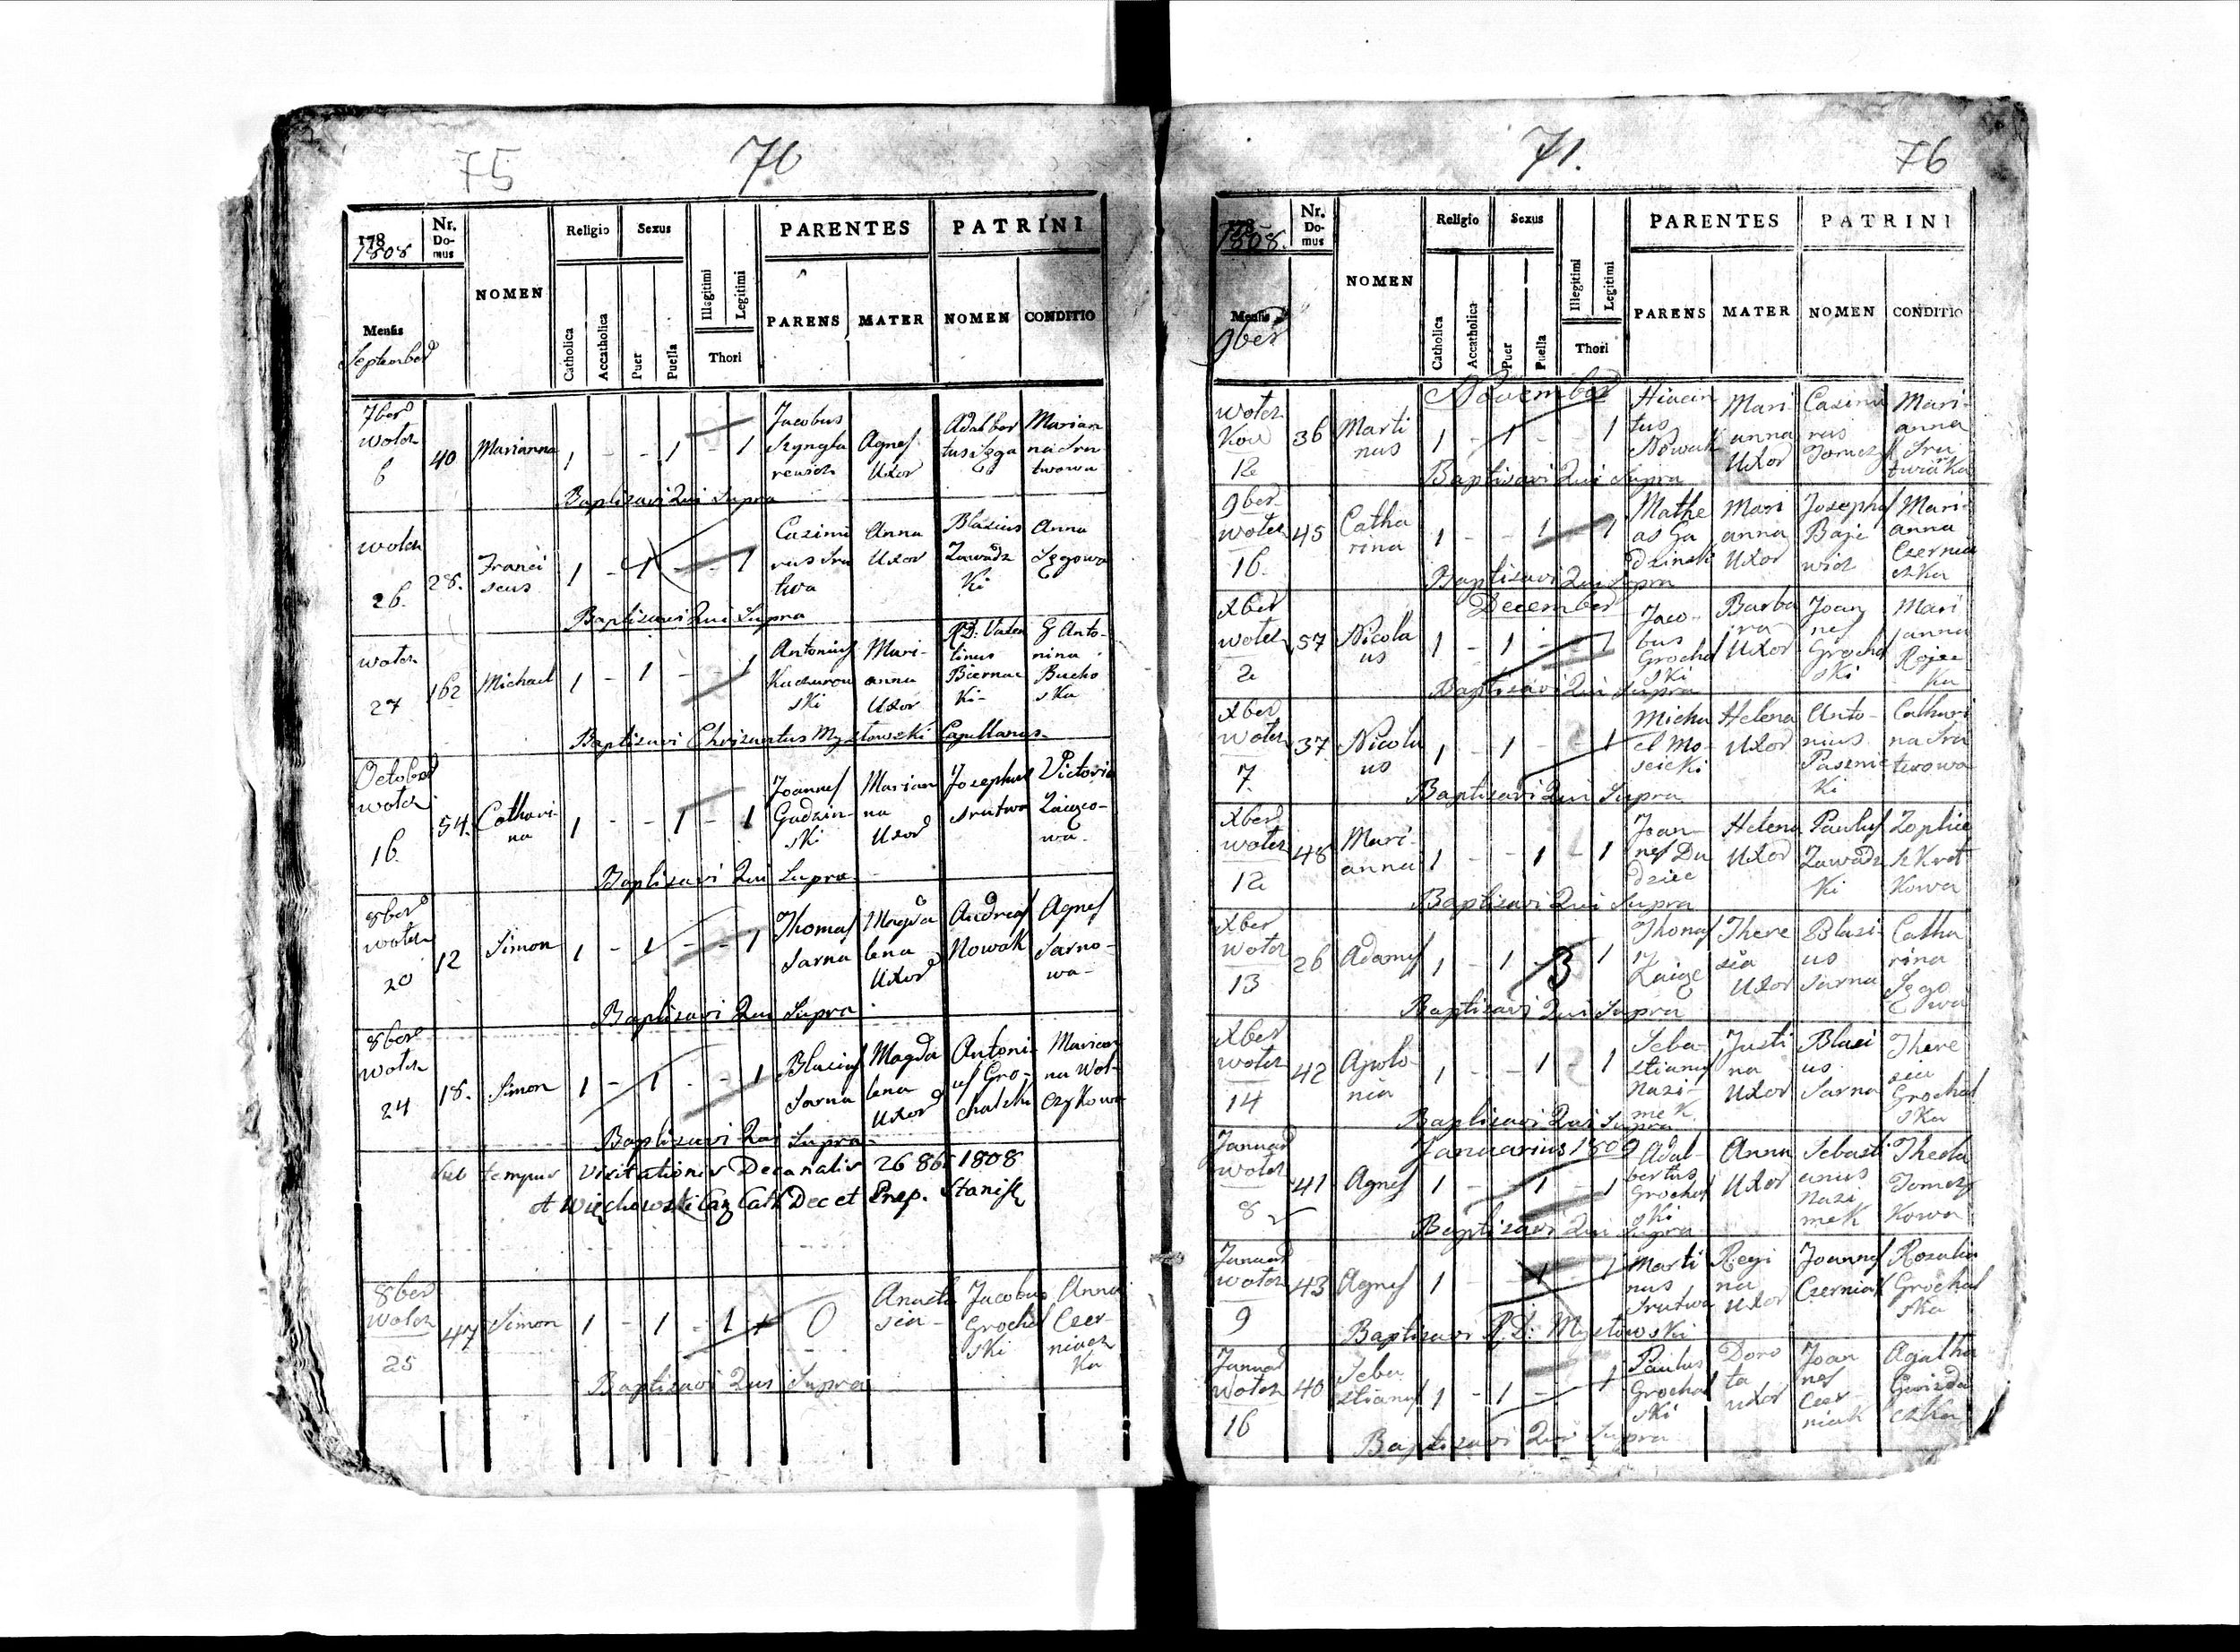 75
70
178
1808
Nr. Domus
NOMEN
Religio
Sexus
PARENTES
PATRINI
Mensis
September
Catholica
Accatholica
Puer
Puella
Illegitimi
Legitimi
Thori
PARENS
MATER
NOMEN
CONDITIO
7ber wolcz 6
40
Marianna
1 - - 1 - 1
Jacobus
Agnes Uxor
Adalbertus Szga
Marianna Srutwowa
Baptisavi Qui Supra
wolcz 26.
28.
Franciscus
1 - 1 - - 1
Casimirus Srutwa
Anna Uxor
Blasius Zawadzki
Anna Szgowa
Baptisavi Qui Supra
wolcz 27
162
Michael
1 - 1 - - 1
Antonius
Marianna Uxor
RD: Valentinus Biernacki
G Antonina
Baptisavi Chrisantus Mysłowski Capellanus
October wolcz 16.
54.
Catharina
1 - - 1 - 1
Joannes Gadzinski
Marianna Uxor
Josephus Srutwa
Victoria
Baptisavi Qui Supra
8ber wolcz 20
12
Simon
1 - 1 - - 1
Thomas Sarna
Magdalena Uxor
Andreas Nowak
Agnes Sarnowa
Baptisavi Qui Supra
8ber wolcz 24
18.
Simon
1 - 1 - - 1
Blasius Sarna
Magdalena Uxor
Antonius Grochalski
Marianna Wolczykowa
Baptisavi Qui Supra
Sub tempus Visitationis Decanalis 26 8br 1808
8ber wolcz 25
47
Simon
1 - 1 - 1
0
Anastasia
Jacobus Grochalski
Anna Czerniaczka
Baptisavi Qui Supra
71.
76
178
1808.
Nr. Domus
NOMEN
Religio
Sexus
PARENTES
PATRINI
Mensis
9ber
Catholica
Accatholica
Puer
Puella
Illegitimi
Legitimi
Thori
PARENS
MATER
NOMEN
CONDITIO
November
36
Martinus
1 - 1 - 1
Nowak
Marianna Uxor
Marianna
Baptisavi Qui Supra
9ber wolcz 16.
45
Catharina
1 - - 1 1
Matheas Gadzinski
Marianna Uxor
Josephus Bajewicz
Marianna
Baptisavi Qui Supra
December
Xber wolcz 2
57
Nicolaus
1 - 1 - 1
Jacobus Grochalski
Barbara Uxor
Joannes Grochalski
Marianna
Baptisavi Qui Supra
Xber wolcz 7.
37
Nicolaus
1 - 1 - 1
Michael Moscicki
Helena Uxor
Antonius
Catharina Srutwowa
Baptisavi Qui Supra
Xber wolcz 12
48
Marianna
1 - - 1 - 1
Joannes Dudziec
Helena Uxor
Paulus Zawadzki
Baptisavi Qui Supra
Xber wolcz 13
26
Adamus
1 - 1 - 1
Thomas
Theresia Uxor
Blasius Sarna
Catharina Szgowa
Baptisavi Qui Supra
Xber wolcz 14
42
Apolonia
1 - - 1 1
Sebastianus Nazimek
Justina Uxor
Blasius Sarna
Theresia Grochalska
Baptisavi Qui Supra
Januarius 1809
Januar wolcz 8
41
Agnes
1 - - 1 - 1
Adalbertus Grochalski
Anna Uxor
Sebastianus Nazimek
Thecla
Baptisavi Qui Supra
Januar wolcz 9
43
Agnes
1 - - 1 - 1
Martinus Srutwa
Regina Uxor
Joannes Czerniak
Rosalia Grochalska
Baptisavi R.D: Mysłowski
Januar wolcz 16
40
Sebastianus
1 - 1 - 1
Paulus Grochalski
Dorota uxor
Joannes Czerniak
Agatha
Baptisavi Qui Supra